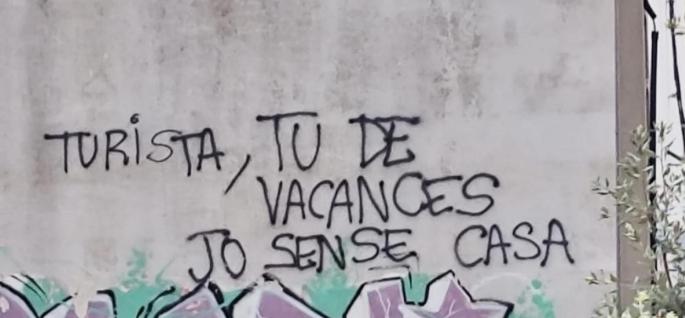 TURISTA, TU DE
VACANCES
JO SENSE CASA